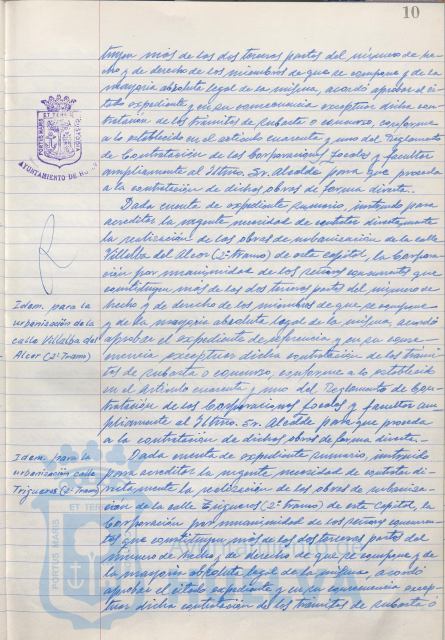 10
tuyen más de las dos terceras partes del número de he-
cho y de derecho de los miembros de que se compone y de la
mayoría absoluta legal de la misma, acordó aprobar el ci-
tado expediente y en su consecuencia exceptuar dicha con-
tratación de los trámites de subasta o concurso, conforme
a lo establecido en el artículo cuarenta y uno del Reglamento
de Contratación de las Corporaciones Locales y facultar
ampliamente al Iltmo. Sr. Alcalde para que proceda
a la contratación de dichas obras de forma directa.
Dada cuenta de expediente sumario, instruido para
acreditar la urgente necesidad de contratar directamente
la realización de las obras de urbanización de la calle
Villalba del Alcor (2º Tramo) de esta capital, la Corpora-
ción por unanimidad de los señores concurrentes que
constituyen más de las dos terceras partes del número de
Idem. para la
urbanización de la
calle Villalba del
Alcor (2º Tramo)
hecho y de derecho de los miembros de que se compone
y de la mayoría absoluta legal de la misma, acordó
aprobar el expediente de referencia y en su conse-
cuencia exceptuar dicha contratación de los trámi-
tes de subasta o concurso, conforme a lo establecido
en el Artículo cuarenta y uno del Reglamento de Con-
tratación de las Corporaciones Locales y facultar am-
pliamente al Iltmo. Sr. Alcalde para que proceda
a la contratación de dichas obras de forma directa.-
Idem. para la
urbanización calle
Trigueros (2º Tramo)
Dada cuenta de expediente sumario, instruido
para acreditar la urgente necesidad de contratar di-
rectamente la realización de las obras de urbaniza-
ción de la calle Trigueros (2º Tramo) de esta Capital, la
Corporación por unanimidad de los señores concurren-
tes que constituyen más de las dos terceras partes del
número de hecho y de derecho de que se compone y de
la mayoría absoluta legal de la misma, acordó
aprobar el citado expediente y en su consecuencia excep-
tuar dicha contratación de los trámites de subasta ó
AYUNTAMIENTO DE
PORTUS MARIS
ET TERRÆ